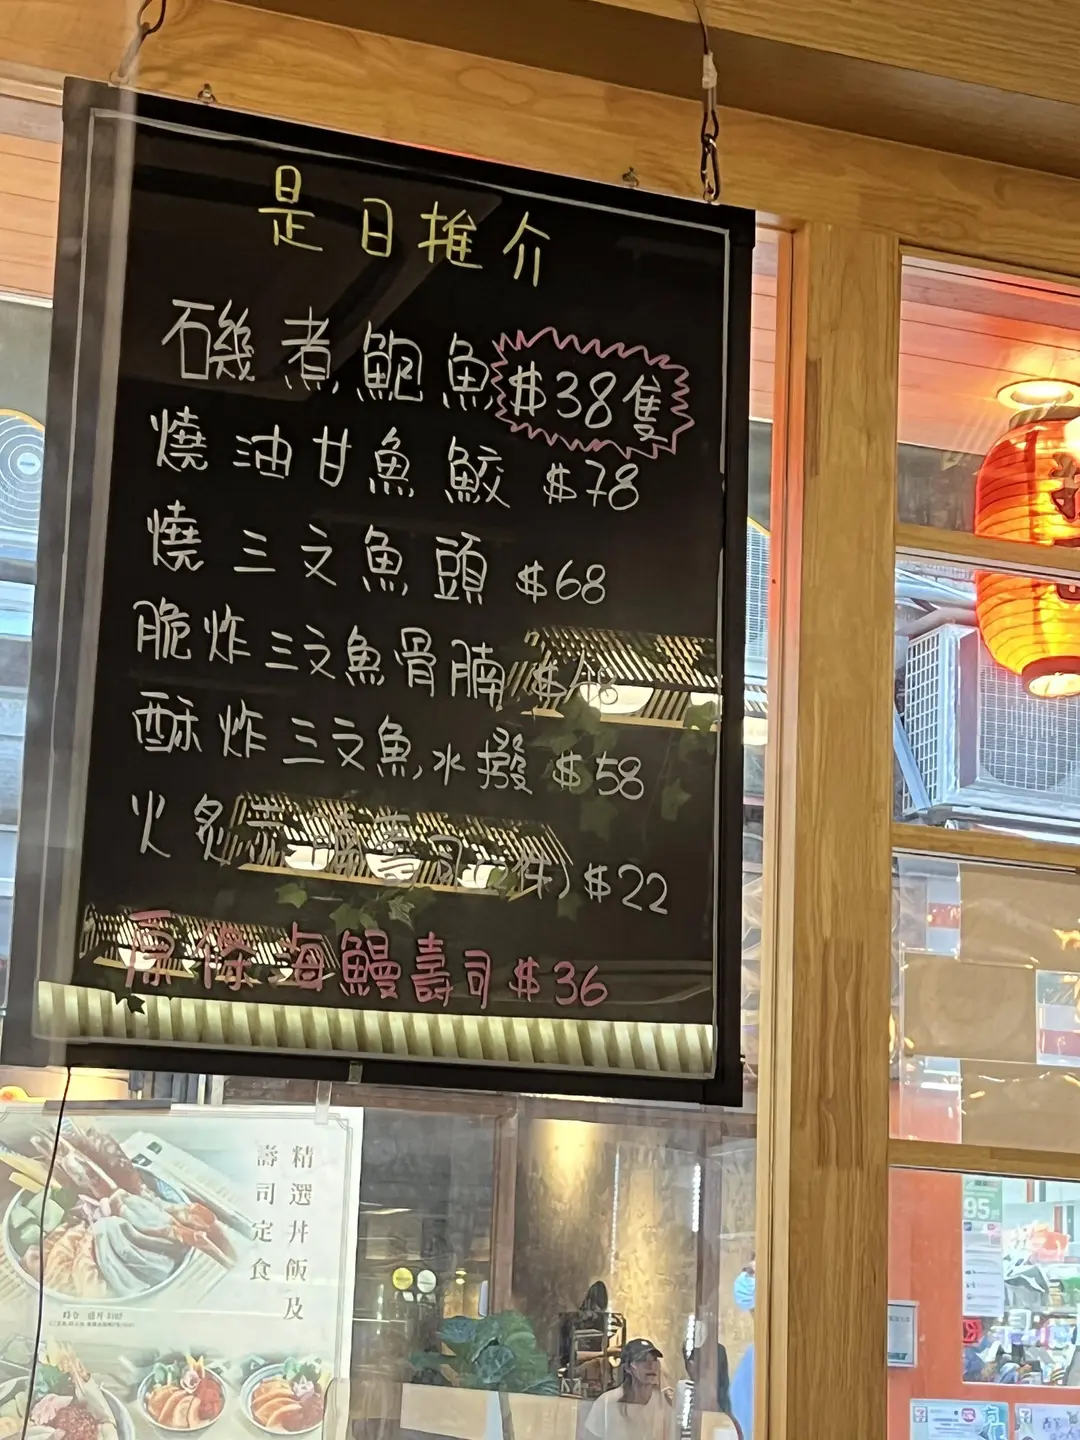 是日推介
磯煮鮑魚 $38隻
燒油甘魚鮫 $78
燒三文魚頭 $68
脆炸三文魚骨腩 $48
酥炸三文魚水撥 $58
火炙 壽司 件) $22
原條海鰻壽司 $36
精選丼飯及
壽司定食
95